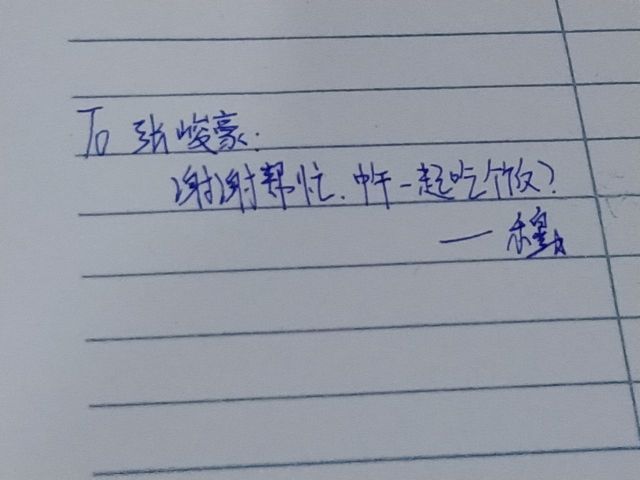 To 张峻豪:
谢谢帮忙.中午一起吃个饭?
—穆